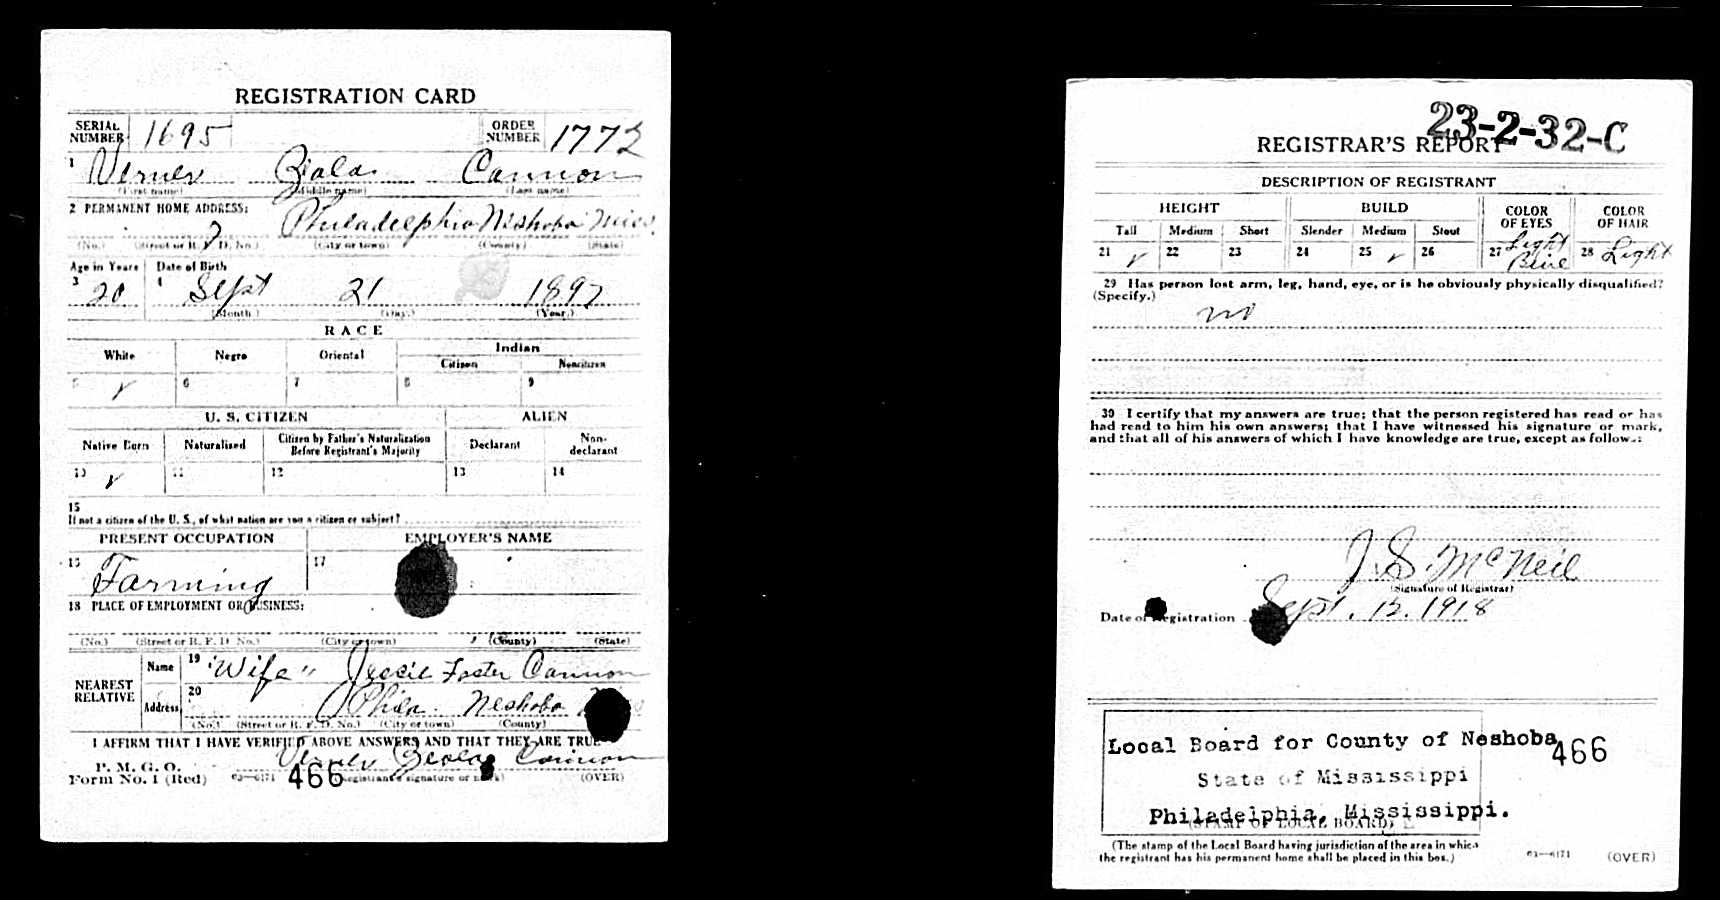 REGISTRATION CARD
SERIAL NUMBER 1695 ORDER NUMBER 1772
1 Verner Cannon
(First name) (Middle name) (Last name)
2 PERMANENT HOME ADDRESS: Philadelphia Neshoba Miss.
(No.) (Street or R. F. D. No.) (City or town) (County) (State)
Age in Years Date of Birth
3 20 4 Sept 21 1897
(Month.) (Day.) (Year.)
RACE
White Negro Oriental Indian
Citizen Noncitizen
5 ✓ 6 7 8 9
U. S. CITIZEN ALIEN
Native Born Naturalized Citizen by Father's Naturalization Before Registrant's Majority Declarant Non-declarant
10 ✓ 11 12 13 14
15
If not a citizen of the U. S., of what nation are you a citizen or subject?
PRESENT OCCUPATION EMPLOYER'S NAME
16 Farming 17
18 PLACE OF EMPLOYMENT OR BUSINESS:
(No.) (Street or R. F. D. No.) (City or town) (County) (State)
NEAREST RELATIVE Name 19 "Wife" Jessie Foster Cannon
Address 20 Phila. Neshoba
(No.) (Street or R. F. D. No.) (City or town) (County)
I AFFIRM THAT I HAVE VERIFIED ABOVE ANSWERS AND THAT THEY ARE TRUE
P. M. G. O.
Form No. 1 (Red) 03—6171 466 Verner Cannon
(Registrant's signature or mark) (OVER)
23-2-32-C
REGISTRAR'S REPORT
DESCRIPTION OF REGISTRANT
HEIGHT BUILD COLOR OF EYES COLOR OF HAIR
Tall Medium Short Slender Medium Stout
21 ✓ 22 23 24 25 ✓ 26 27 Light Blue 28 Light
29 Has person lost arm, leg, hand, eye, or is he obviously physically disqualified?
(Specify.)
no
30 I certify that my answers are true; that the person registered has read or has
had read to him his own answers; that I have witnessed his signature or mark,
and that all of his answers of which I have knowledge are true, except as follows:
J. S. McNeil
(Signature of Registrar)
Date of Registration Sept. 12. 1918
Local Board for County of Neshoba 466
State of Mississippi
Philadelphia, Mississippi.
(STAMP OF LOCAL BOARD)
(The stamp of the Local Board having jurisdiction of the area in which
the registrant has his permanent home shall be placed in this box.)
03—6171 (OVER)